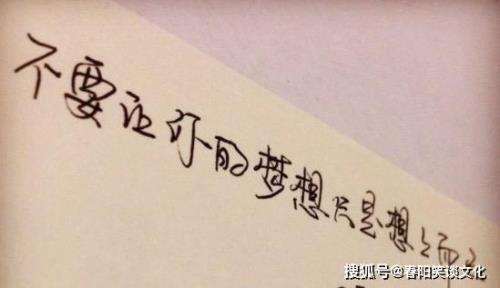 不要让你的梦想只是想想而已
搜狐号@春阳笑谈文化